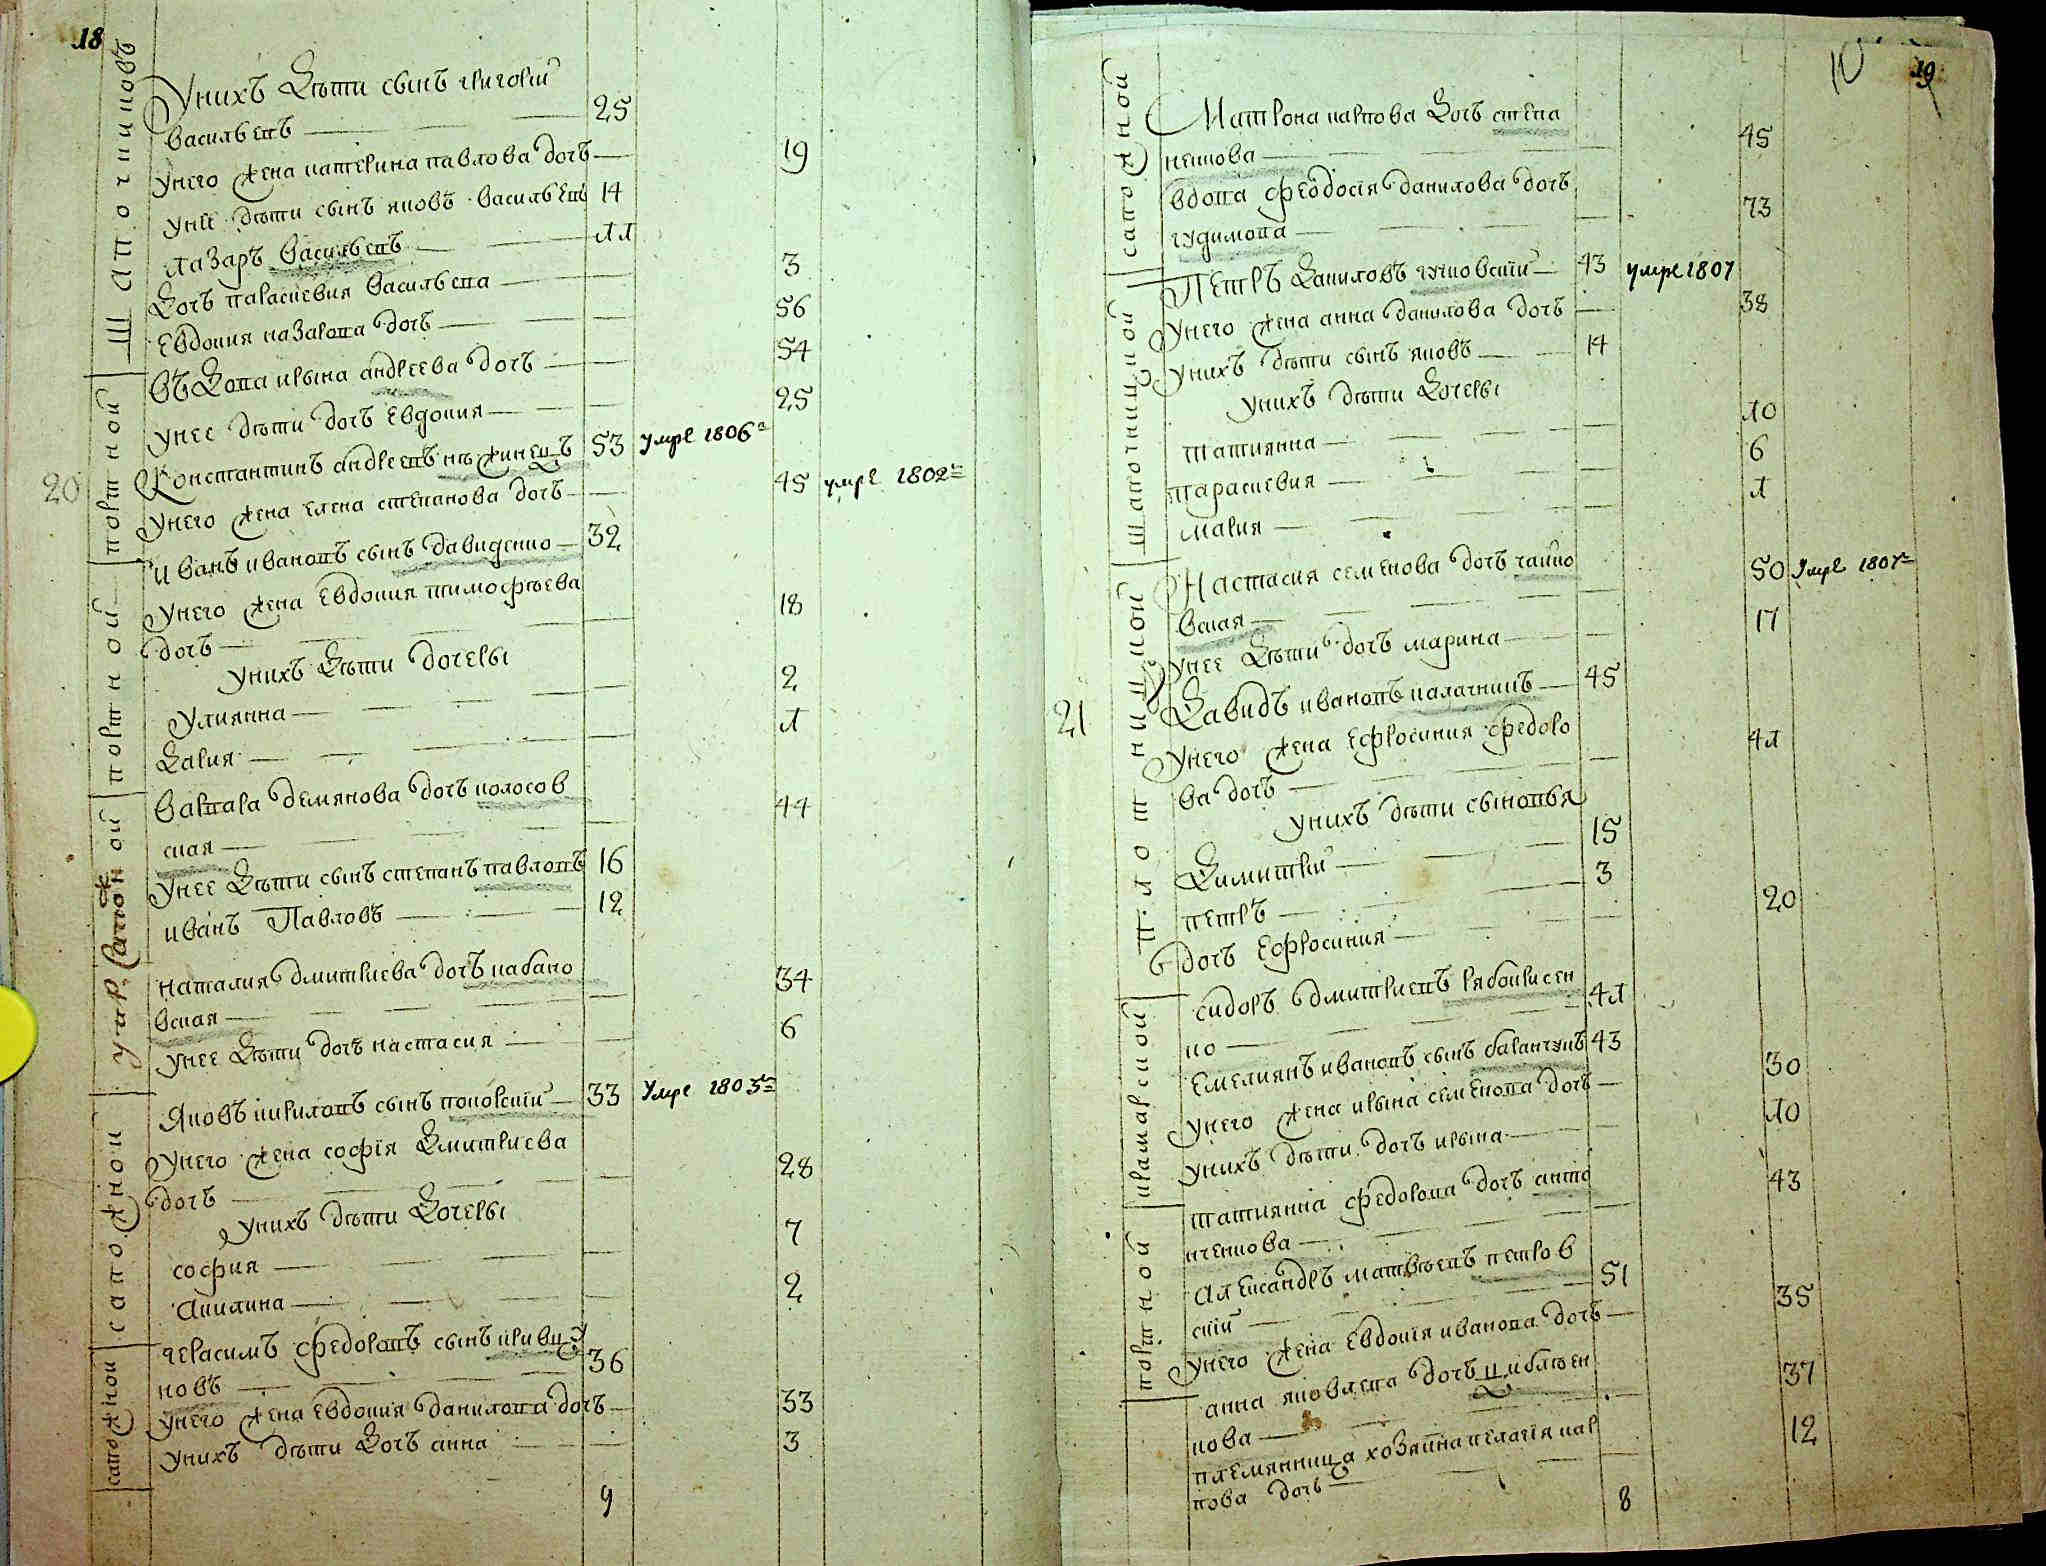 18
Шапочниковъ
Унихъ дѣти сынъ григории
васильевъ — 25
Унего жена катерина павлова дочь — 19
Унее дѣти сынъ яковъ васильевъ 14
лазаръ васильевъ — 11
Дочь параскевия васильева — 3
Евдокия назарова дочь — 56
портной
Вдова ирына андреева дочь — 54
Унее дѣти дочь евдокия — 25
20
Константинъ андреевъ нѣжинецъ 53 умре 1806
Унего жена елена степанова дочь — 45 умре 1802
портной
Иванъ ивановъ сынъ давиденко — 32
Унего жена Евдокия тимофѣева
дочь — 18
Унихъ дѣти дочеры
Улиянна — 2
Дария — 1
Варвара демянова дочь колосов
ская — 44
Унее дѣти сынъ степанъ павловъ 16
иванъ Павловъ — 12
Наталия дмитриева дочь кабано
вская — 34
Унее дѣти дочь настасия — 6
сапожной
Яковъ кириловъ сынъ покорский — 33 Умре 1803
Унего жена софія дмитриева
дочь — 28
Унихъ дѣти дочеры
софия — 7
Акилина — 2
сапожной
герасимъ федоровъ сынъ кривцу
новъ — 36
Унего жена Евдокия данилова дочь — 33
Унихъ дѣти дочь анна — 3
9
10
19
сапожной
Матрона карпова дочь степа
ненкова — 45
вдова феодосія данилова дочь
гудимова — 73
шапочницкой
Петръ даниловъ гуковский — 43 умре 1807
Унего жена анна данилова дочь — 38
Унихъ дѣти сынъ яковъ — 14
Унихъ дѣти дочеры
татиянна — 10
параскевия — 6
мария — 1
Плотницкой
Настасия семенова дочь чайко
вская — 50 Умре 1807
Унее дѣти дочь марина — 17
21
Давидъ ивановъ калачникъ — 45
Унего жена Ефросиния федоро
ва дочь — 41
Унихъ дѣти сыновья
Димитрий — 15
петръ — 3
дочь Ефросиния — 20
крамарской
сидоръ дмитриевъ рябокрисен
ко — 41
Емелиянъ ивановъ сынъ баранчикъ 43
Унего жена ирына семенова дочь — 30
Унихъ дѣти дочь ирына — 10
татиянна федорова дочь анто
нченкова — 43
портной
Александръ матвѣевъ петров
ский — 51
Унего жена Евдокія иванова дочь — 35
анна яковлева дочь цибѣлен
кова — 37
племянница хозяйна пелагія кар
пова дочь — 12
8